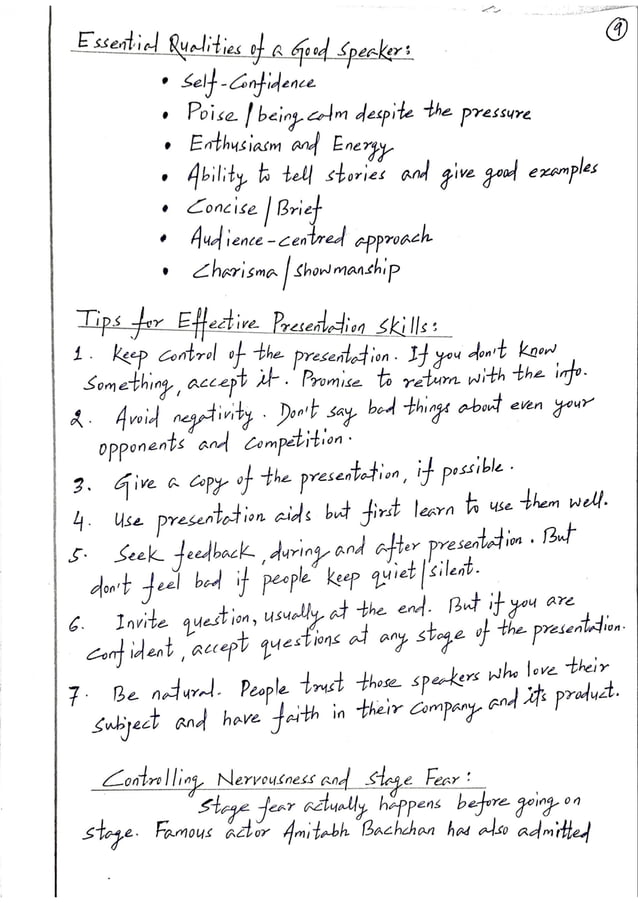 9
Essential Qualities of a Good Speaker:
• Self-Confidence
• Poise / being calm despite the pressure
• Enthusiasm and Energy
• Ability to tell stories and give good examples
• Concise / Brief
• Audience-centred approach
• Charisma / showmanship
Tips for Effective Presentation Skills:
1. Keep control of the presentation. If you don't know
something, accept it. Promise to return with the info.
2. Avoid negativity. Don't say bad things about even your
opponents and competition.
3. Give a copy of the presentation, if possible.
4. Use presentation aids but first learn to use them well.
5. Seek feedback, during and after presentation. But
don't feel bad if people keep quiet/silent.
6. Invite question, usually at the end. But if you are
confident, accept questions at any stage of the presentation.
7. Be natural. People trust those speakers who love their
subject and have faith in their company and its product.
Controlling Nervousness and Stage Fear:
Stage fear actually happens before going on
stage. Famous actor Amitabh Bachchan has also admitted